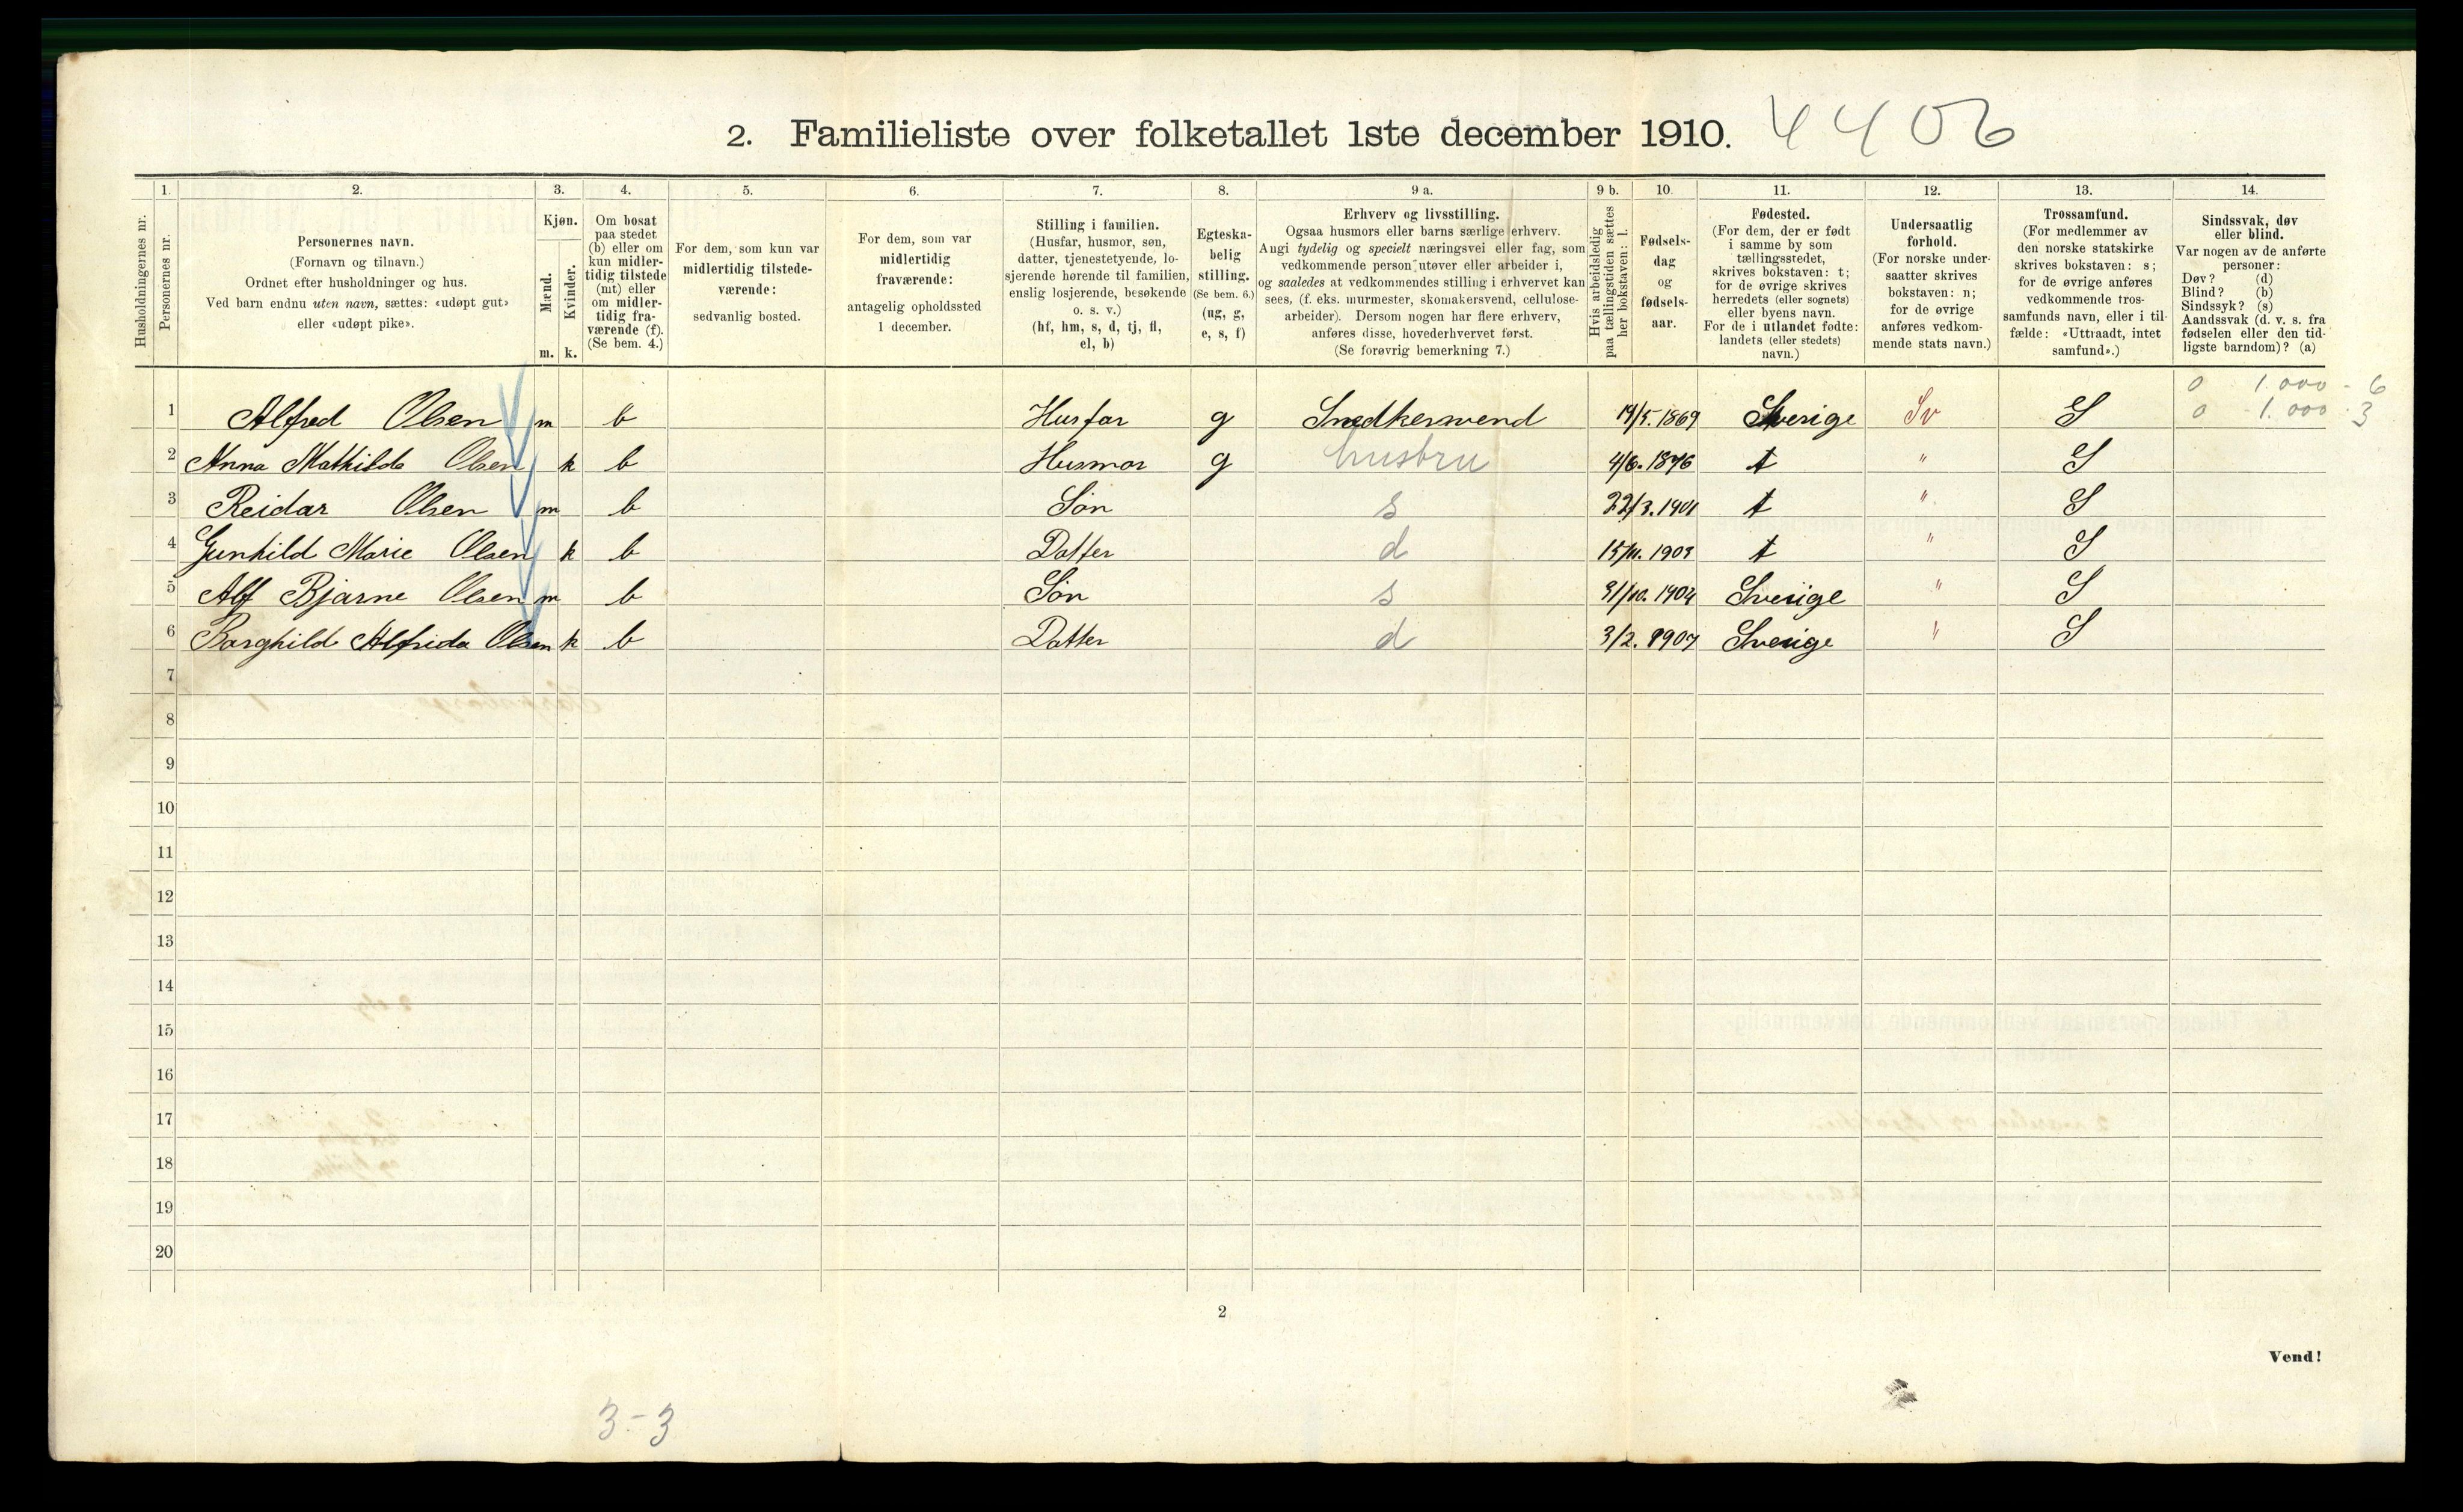 2. Familieliste over folketallet 1ste december 1910. 4406
Husholdningernes nr.
1. Personernes nr.
2. Personernes navn.
(Fornavn og tilnavn.)
Ordnet efter husholdninger og hus.
Ved barn endnu uten navn, sættes: «udøpt gut»
eller «udøpt pike».
3. Kjøn.
Mænd. m.
Kvinder. k.
4. Om bosat
paa stedet
(b) eller om
kun midler-
tidig tilstede
(mt) eller
om midler-
tidig fra-
værende (f).
(Se bem. 4.)
5. For dem, som kun var
midlertidig tilstede-
værende:
sedvanlig bosted.
6. For dem, som var
midlertidig
fraværende:
antagelig opholdssted
1 december.
7. Stilling i familien.
(Husfar, husmor, søn,
datter, tjenestetyende, lo-
sjerende hørende til familien,
enslig losjerende, besøkende
o. s. v.)
(hf, hm, s, d, tj, fl,
el, b)
8. Egteska-
belig
stilling.
(Se bem. 6.)
(ug, g,
e, s, f)
9 a. Erhverv og livsstilling.
Ogsaa husmors eller barns særlige erhverv.
Angi tydelig og specielt næringsvei eller fag, som
vedkommende person utøver eller arbeider i,
og saaledes at vedkommendes stilling i erhvervet kan
sees, (f. eks. murmester, skomakersvend, cellulose-
arbeider). Dersom nogen har flere erhverv,
anføres disse, hovederhvervet først.
(Se forøvrig bemerkning 7.)
9 b. Hvis arbeidsledig
paa tællingstiden sættes
her bokstaven: l.
10. Fødsels-
dag
og
fødsels-
aar.
11. Fødested.
(For dem, der er født
i samme by som
tællingsstedet,
skrives bokstaven: t;
for de øvrige skrives
herredets (eller sognets)
eller byens navn.
For de i utlandet fødte:
landets (eller stedets)
navn.)
12. Undersaatlig
forhold.
(For norske under-
saatter skrives
bokstaven: n;
for de øvrige
anføres vedkom-
mende stats navn.)
13. Trossamfund.
(For medlemmer av
den norske statskirke
skrives bokstaven: s;
for de øvrige anføres
vedkommende tros-
samfunds navn, eller i til-
fælde: «Uttraadt, intet
samfund».)
14. Sindssvak, døv
eller blind.
Var nogen av de anførte
personer:
Døv? (d)
Blind? (b)
Sindssyk? (s)
Aandssvak (d. v. s. fra
fødselen eller den tid-
ligste barndom)? (a)
0 1.000 - 6
0 - 1.000 - 3
1 Alfred Olsen m b Husfar g Snedkersvend 19/5.1869 Sverige Sv S
2 Anna Mathilde Olsen k b Husmor g husbru 4/6.1876 t " S
3 Reidar Olsen m b Søn s 22/3.1901 t " S
4 Gunhild Marie Olsen k b Datter d t " S
5 Alf Bjarne Olsen m b Søn s Sverige " S
6 Borghild Alfrida Olsen k b Datter d 3/2.1907 Sverige " S
7
8
9
10
11
12
13
14
15
16
17
18
19
20
2
Vend!
3-3